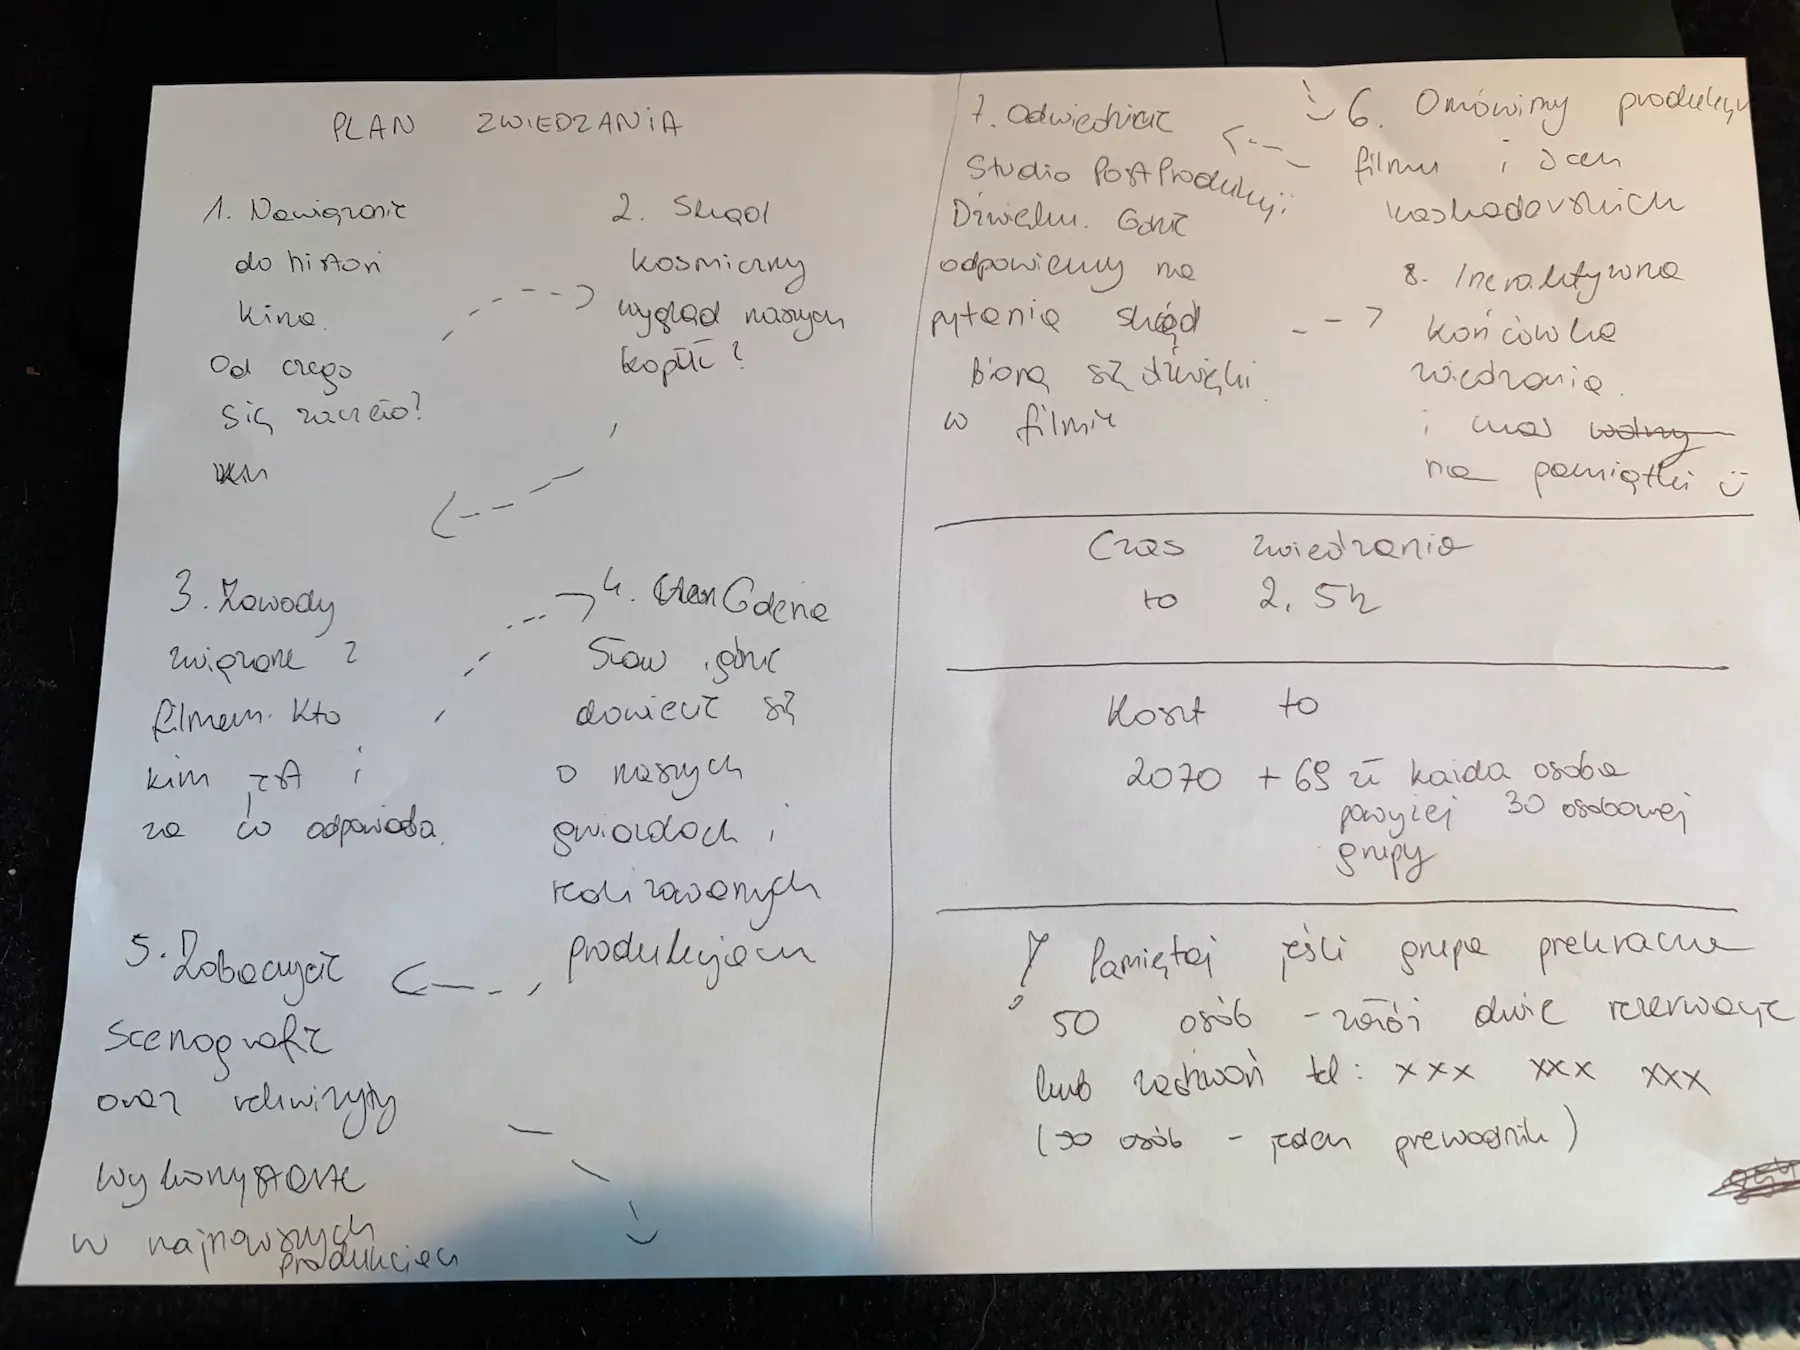 PLAN ZWIEDZANIA
1. Nawiązanie
do histori
kina.
Od czego
się zaczęło?
2. Skąd
kosmiczny
wygląd naszych
kopłł?
3. Zawody
związane z
filmem. Kto
kim jest i
za co odpowiada.
4. Galeria
Sław, gdzie
dowiecie się
o naszych
gwiazdach i
realizowanych
produkcjach
5. Zobaczycie
scenografie
oraz rekwizyty
wykorzystane
w najnowszych
produkcjach
6. Omówimy produkcję
filmu i scen
kaskaderskich
7. Odwiedzicie
Studio PostProdukcji
Dźwięku. Gdzie
odpowiemy na
pytania skąd
biorą się dźwięki
w filmie
8. Interaktywna
końcówka
zwiedzania
i czas wolny
na pamiątki
Czas zwiedzania
to 2,5h
Koszt to
2070 + 69 zł każda osoba
powyżej 30 osobowej
grupy
! Pamiętaj jeśli grupa przekracza
50 osób - złóż dwie rezerwacje
lub zadzwoń tel: xxx xxx xxx
(50 osób - jeden przewodnik)